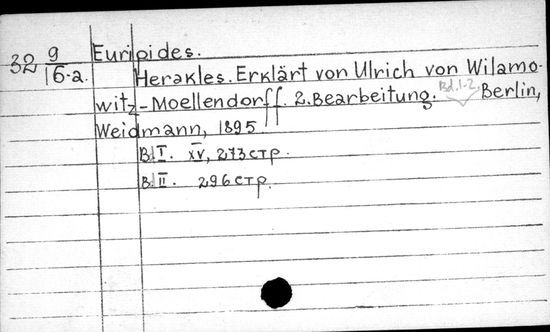 32 9/16-a. Euripides.
Herakles. Erklärt von Ulrich von Wilamo-
witz-Moellendorff. 2. Bearbeitung. Bd. 1-2. Berlin,
Weidmann, 1895
Bd I. XV, 273 стр.
Bd II. 296 стр.